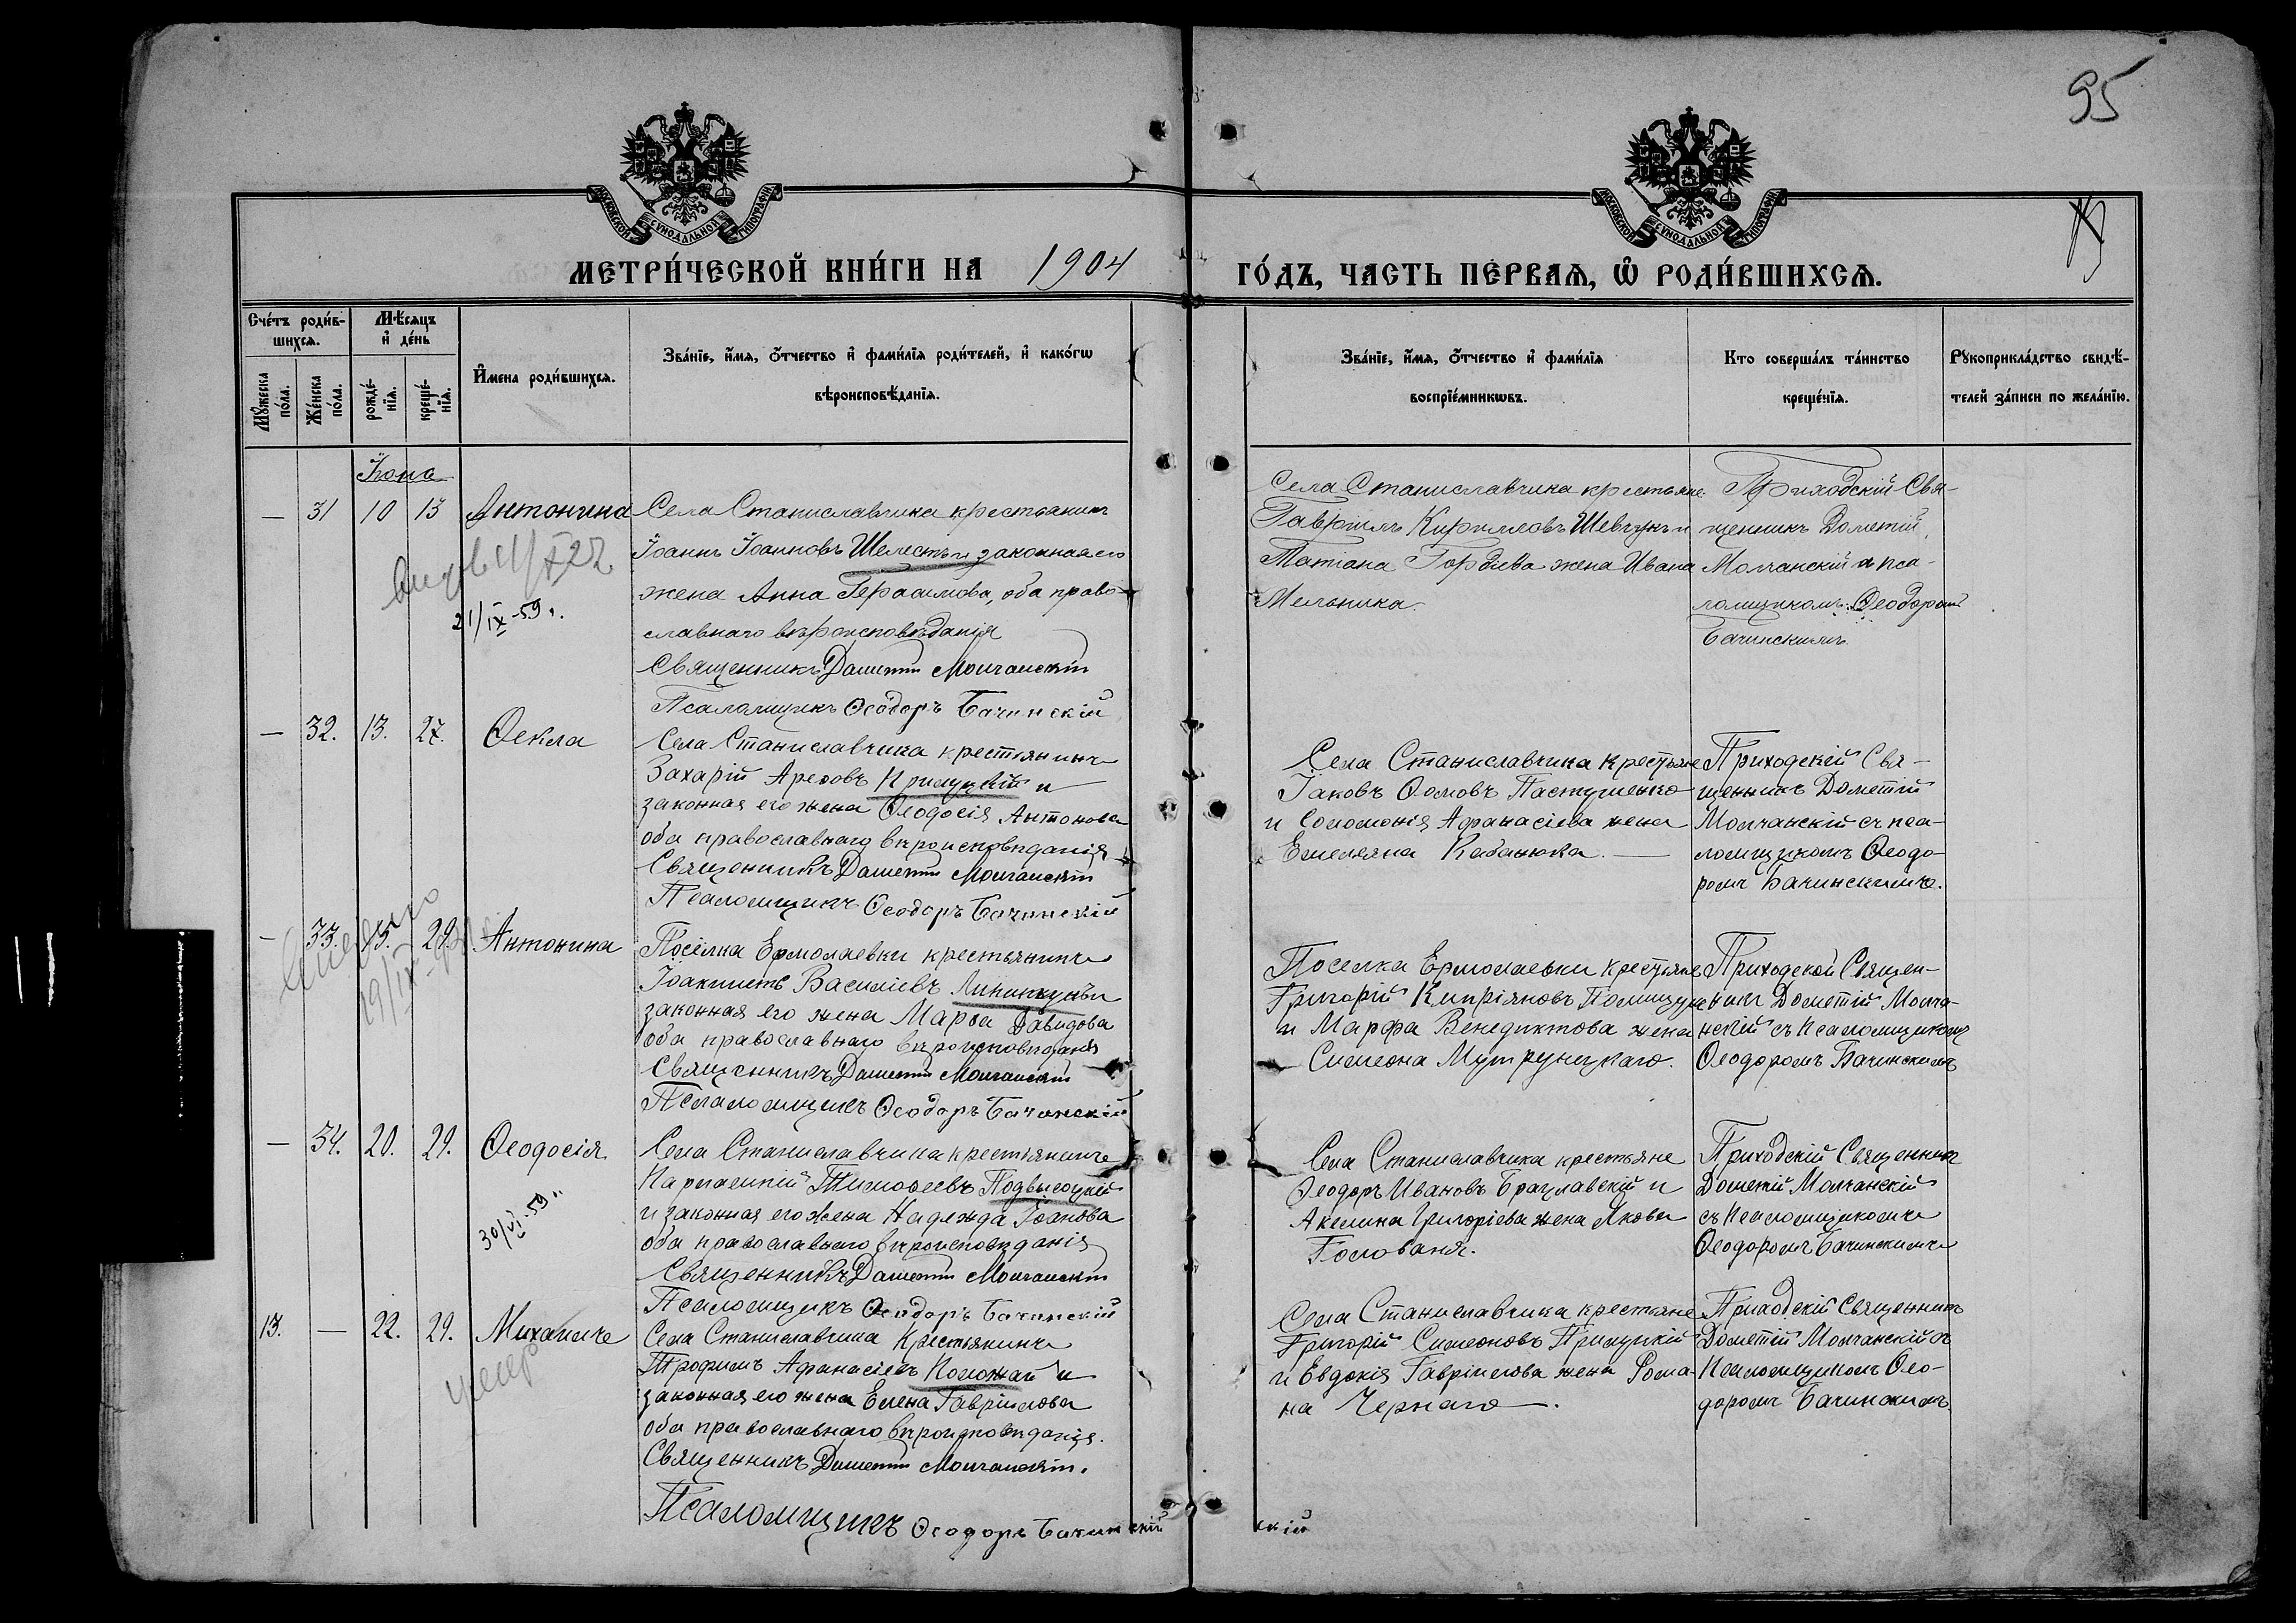 95
МОСКОВСКОЙ СУНОДАЛЬНОЙ ТИПОГРАФІИ
МОСКОВСКОЙ СУНОДАЛЬНОЙ ТИПОГРАФІИ
МЕТРИ́ЧЕСКОЙ КНИ́ГИ НА 1904
ГО́ДЪ, ЧАСТЬ ПЕ́РВАЯ, Ѡ҆ РОДИ́ВШИХСЯ.
Сче́тъ роди́в-
шихся.
Мѣ́сяцъ
и҆ де́нь
Мꙋ́жеска
по́ла.
Же́нска
по́ла.
рожде́-
нїя.
креще́-
нїя.
И҆мена роди́вшихся.
Зва́нїе, и҆́мя, ѻ҆́тчество и҆ фами́лїя роди́телей, и҆ како́гѡ
вѣроисповѣ́данїя.
Зва́нїе, и҆́мя, ѻ҆́тчество и҆ фами́лїя
воспрїе́мникѡвъ.
Кто соверша́лъ та́инство
креще́нїя.
Рꙋкоприкла́дство свидѣ́-
телей за́писи по жела́нїю.
Іюня
— 31 10 13 Антонина
Села Станиславчика крестьянинъ
Іоаннъ Іоанновъ Шелестъ и законная его
жена Анна Герасимова, оба право-
славнаго вѣроисповѣданія
Священникъ Дометій Молчанскій
Псаломщикъ Ѳеодоръ Бачинскій
21/IX-59 г.
Села Станиславчика крестьяне
Гавріилъ Кирилловъ Шевчукъ и
Татіана Гордіева жена Ивана
Мельника.
Приходскій Свя-
щенникъ Дометій
Молчанскій и пса-
ломщикомъ Ѳеодоромъ
Бачинскимъ
— 32. 13. 27. Ѳекла
Села Станиславчика крестьянинъ
Захарій Ареѳовъ Прилуцкій и
законная его жена Ѳеодосія Антонова
оба православнаго вѣроисповѣданія
Священникъ Дометій Молчанскій
Псаломщикъ Ѳеодоръ Бачинскій
Села Станиславчика крестьяне
Іаковъ Ѳомовъ Пастушенко
и Соломонія Афанасіева жена
Емельяна Кабанюка. —
Приходскій Свя-
щенникъ Дометій
Молчанскій съ пса-
ломщикомъ Ѳеодо-
ромъ Бачинскимъ.
— 33. 15. 29. Антонина
Посёлка Ермолаевки крестьянинъ
Іоакимъ Василіевъ и
законная его жена Марѳа Давидова
оба православнаго вѣроисповѣданія
Священникъ Дометій Молчанскій
Псаломщикъ Ѳеодоръ Бачинскій
Поселка Ермолаевки крестьяне
Григорій Кипріяновъ
и Марфа Венедиктова жена
Симеона Мутруницкаго.
Приходской Священ-
никъ Дометій Молча-
нскій съ Псаломщикомъ
Ѳеодоромъ Бачинскимъ
— 34. 20. 29. Ѳеодосія
Села Станиславчика крестьянинъ
Тимоѳеевъ Подвысоцкій
и законная его жена Надежда Іоанова
оба православнаго вѣроисповѣданія
Священникъ Дометій Молчанскій
Псаломщикъ Ѳеодоръ Бачинскій
30/VI-59 г.
Села Станиславчика крестьяне
Ѳеодоръ Ивановъ Брацлавскій и
Акелина Григоріева жена Якова
Голованя.
Приходскій Священникъ
Дометій Молчанскій
съ Псаломщикомъ
Ѳеодоромъ Бачинскимъ
13. — 22. 29. Михаилъ
умер
Села Станиславчика крестьянинъ
Трофимъ Афанасіевъ Положай и
законная его жена Елена Гавріилова
оба православнаго вѣроисповѣданія.
Священникъ Дометій Молчанскій.
Псаломщикъ Ѳеодоръ Бачинскій
Села Станиславчика крестьяне
Григорій Симеоновъ Прилуцкій
и Евдокія Гавріилова жена Рома-
на Чернаго —.
Приходскій Священникъ
Дометій Молчанскій съ
Псаломщикомъ Ѳео-
доромъ Бачинскимъ.